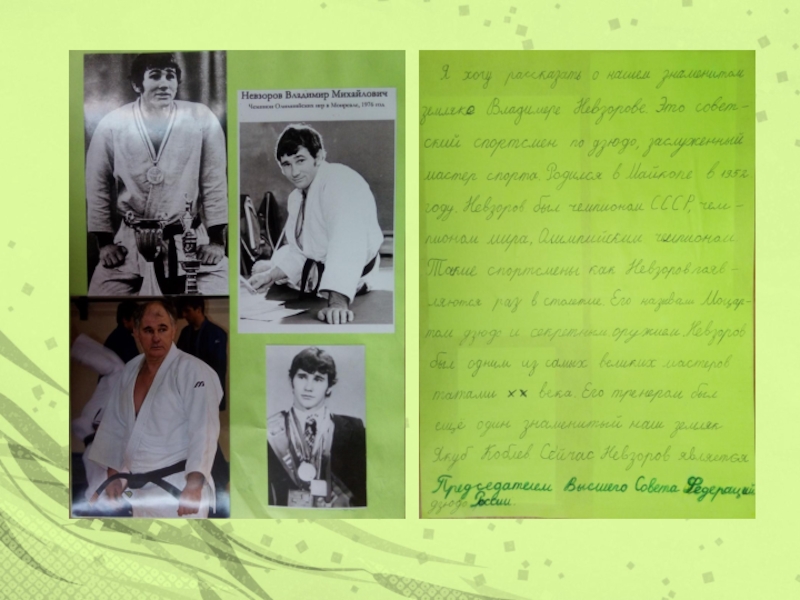 Невзоров Владимир Михайлович
Чемпион Олимпийских игр в Монреале, 1976 год
Я хочу рассказать о нашем знаменитом
земляке Владимире Невзорове. Это совет-
ский спортсмен по дзюдо, заслуженный
мастер спорта. Родился в Майкопе в 1952
году. Невзоров был чемпионом СССР, чем-
пионом мира, Олимпийским чемпионом.
Такие спортсмены как Невзоров появ-
ляются раз в столетие. Его назвали Моцар-
том дзюдо и секретным оружием. Невзоров
был одним из самых великих мастеров
татами XX века. Его тренером был
ещё один знаменитый наш земляк
Якуб Коблев Сейчас Невзоров является
Председателем Высшего Совета Федерации
дзюдо России.